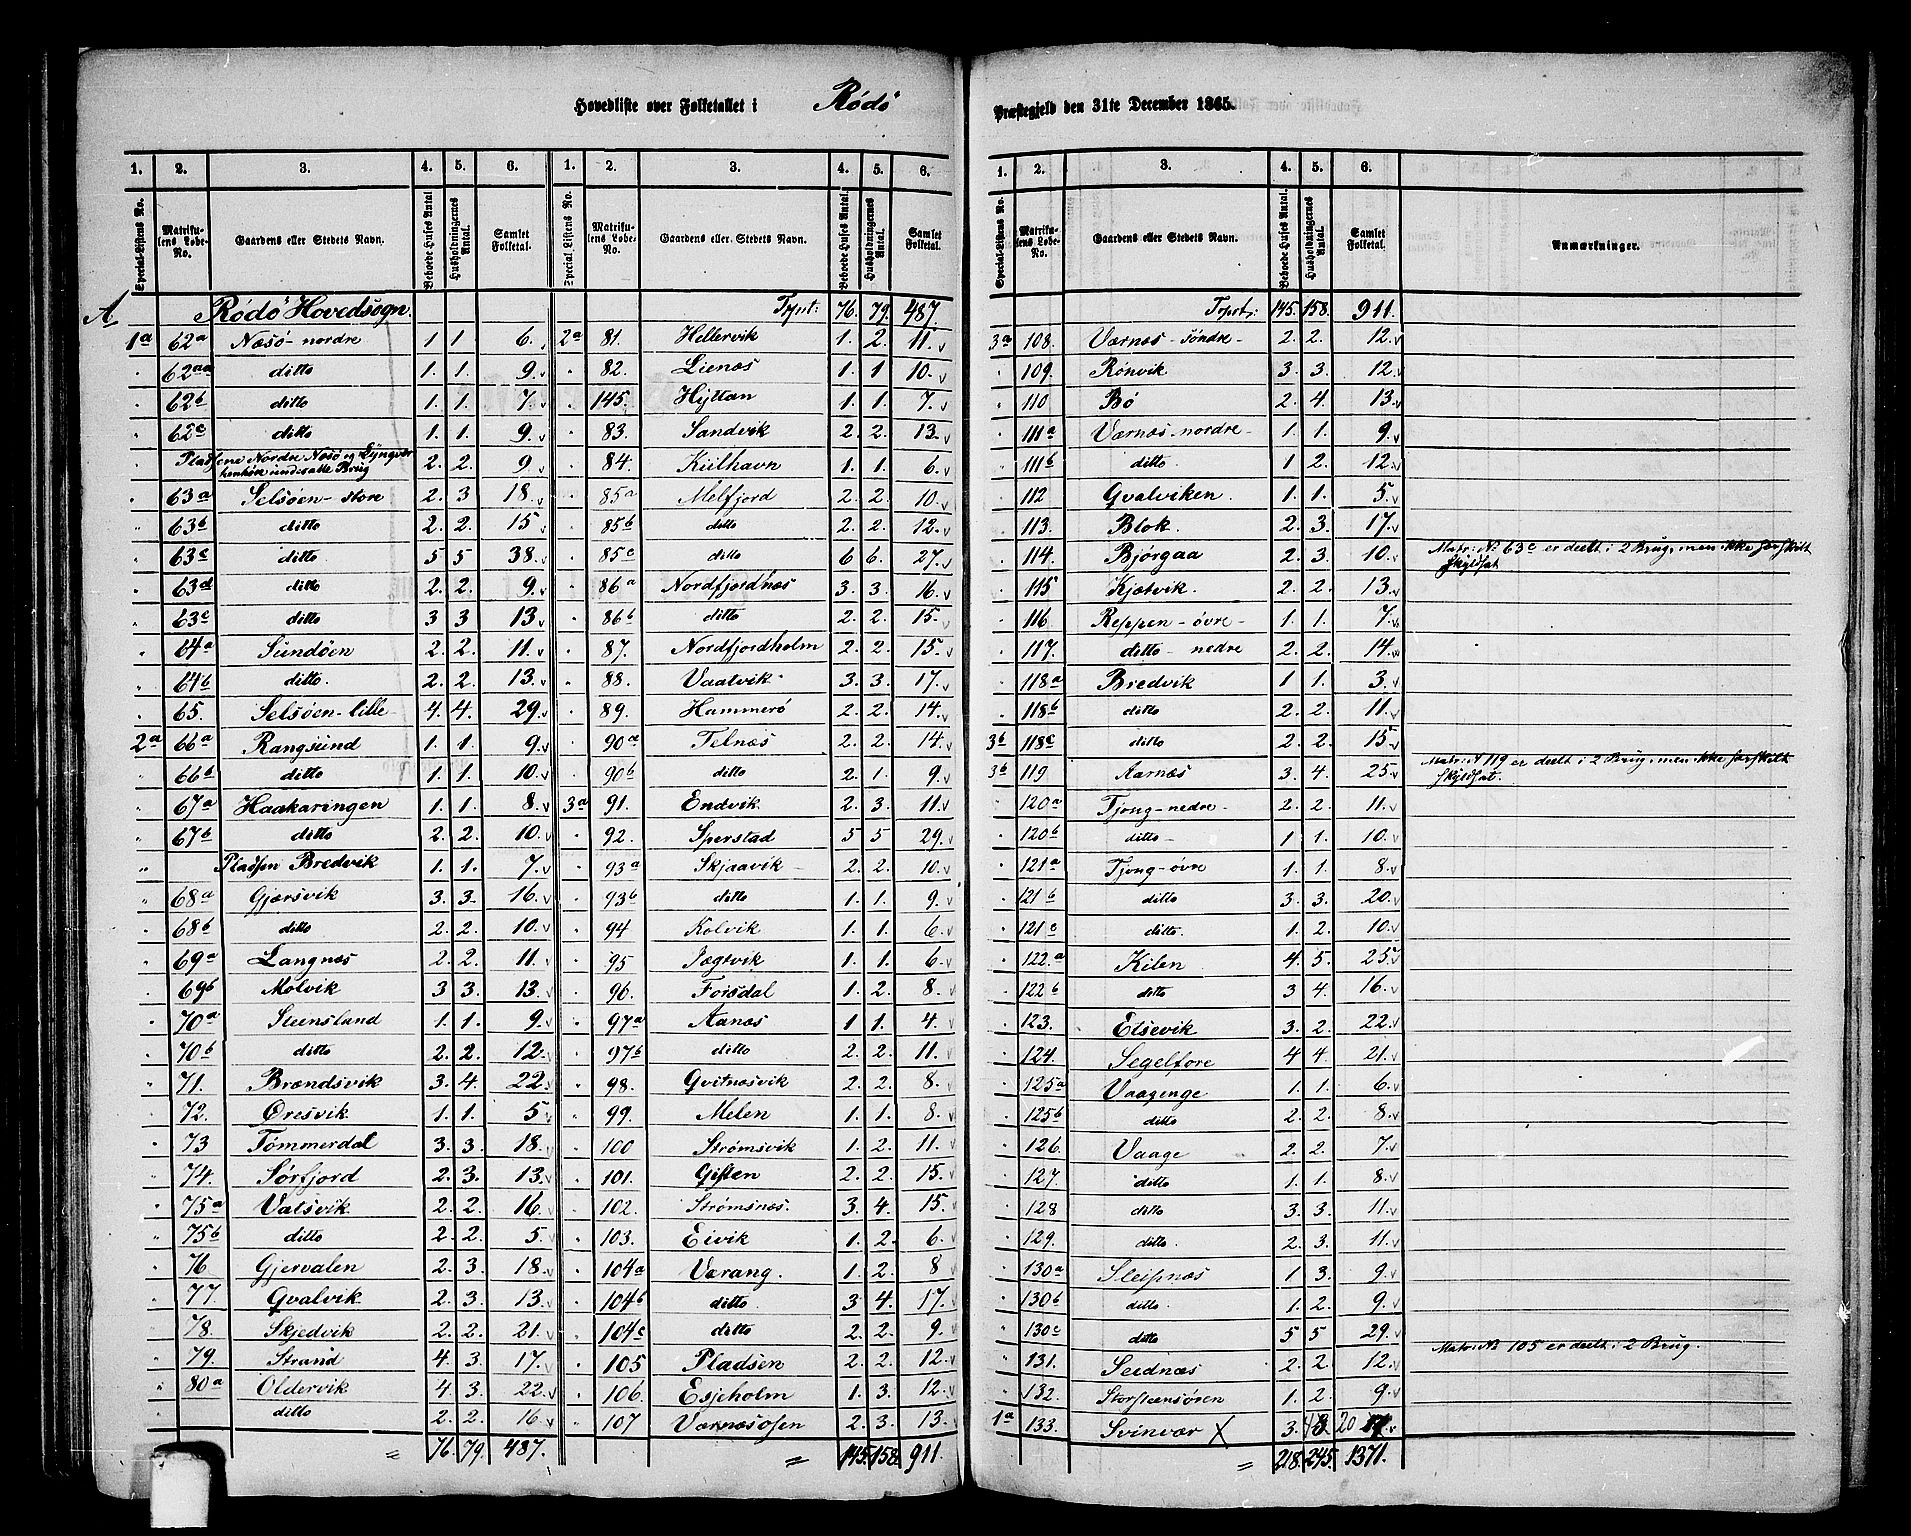 Hovedliste over Folketallet i Rödö Præstegjeld den 31te December 1865.
1. 2. 3. 4. 5. 6. 1. 2. 3. 4. 5. 6.
Special-Listens No. Matrikulens Løbe-No. Gaardens eller Stedets Navn. Beboede Huses Antal Husholdningernes Antal. Samlet Folketal. Special-Listens No. Matrikulens Løbe-No. Gaardens eller Stedets Navn. Beboede Huses Antal. Husholdningernes Antal. Samlet Folketal.
A Rödö Hovedsogn Trpt: 76. 79. 487.
1a 62a Næsö-nordre 1 1 6. 2a 81. Hellervik 1. 2. 11.
" 62aa ditto 1. 1. 9. " 82. Lienæs 1. 1 10.
" 62b ditto 1. 1. 7. " 145. Hyttan 1. 1. 7.
" 62c ditto 1. 1. 9. " 83. Sandvik 2. 2. 13.
Pladsene Nordre Næsö og Lyngvær henhöre undersatte Brug 2. 2. 9 " 84. Kilhavn 1. 1. 6.
" 63a Selsöen-store 2. 3 18. " 85a Melfjord 2. 2. 10.
" 63b ditto 2. 2. 15 " 85b ditto 2. 2. 12.
" 63c ditto 5 5 38. " 85c ditto 6 6. 27.
" 63d ditto 2. 2. 9. " 86a Nordfjordnæs 3. 3. 16.
" 63e ditto 3 3 13. " 86b ditto 2. 2. 15.
" 64a Sundöen 2. 2. 11. " 87. Nordfjordholm 2. 2. 15.
" 64b ditto. 2. 2. 13. " 88. Vaatvik 3. 3. 17.
" 65. Selsöen-lille 4. 4. 29. " 89. Hammerö 2. 2. 14.
2a 66a Rangsund 1. 1. 9. " 90a Telnæs 2. 2. 14.
" 66b ditto 1. 1. 10. " 90b ditto 2. 1. 9.
" 67a Haakaringen 1. 1. 8. 3a 91. Endvik 2. 3. 11.
" 67b ditto 2. 2. 10. " 92. Sperstad 5 5 29.
" Pladsen Bredvik 1. 1. 7. " 93a Skjaavik 2. 2. 10.
" 68a Gjersvik 3. 3. 16. " 93b ditto 1. 1. 9.
" 68b ditto 2. 2. 10. " 94 Kolvik 1. 1. 6
" 69a Langnæs 2. 2. 11. " 95 Jægtvik 1. 1. 6.
" 69b Molvik 3 3. 13. " 96. Forsdal 1. 2. 8.
" 70a Steensland 1. 1. 9. " 97a Aanæs 1 1. 4.
" 70b ditto 2. 2. 12. " 97b ditto 2. 2. 11.
" 71. Brændsvik 3. 4. 22. " 98. Gvitnæsvik 2. 2. 8.
" 72. Öresvik 1. 1. 5 " 99. Melen 1. 1. 8.
" 73 Tömmerdal 3. 3. 18. " 100 Strömsvik 1. 2. 11.
" 74. Sörfjord 2. 3. 13. " 101. Gisten 2. 2. 15.
" 75a Valsvik 2. 2. 16. " 102. Strömsnæs. 3. 4. 15.
" 75b ditto 2. 2. 5. " 103. Eivik 1. 2. 6
" 76 Gjervalen 2. 3. 18. " 104a Værang. 1. 2. 8
" 77. Gvalvik 2. 3. 13. " 104b ditto. 3 4. 17.
" 78. Skjedvik 2. 2. 21. " 104c ditto. 2. 2. 9.
" 79. Strand 4. 3. 17. " 105 Pladsen 2. 2. 12.
" 80a Oldervik 4. 3. 22. " 106. Esjeholm 1. 3. 12.
" ditto 2. 2. 16 " 107 Værnæsosen 2. 3. 13.
= 76. 79. 487. = 145. 158. 911.
1. 2. 3. 4. 5. 6.
Special-Listens No. Matrikulens Løbe-No. Gaardens eller Stedets Navn. Beboede Huses Antal. Husholdningernes Antal. Samlet Folketal. Anmærkninger.
Trpt: 145. 158. 911.
3a 108. Værnæs-söndre 2. 2. 12.
" 109. Rönvik 3. 3. 12.
" 110 Bö 2. 4. 13.
" 111a Værnæs-nordre 1. 1. 9.
" 111b ditto. 1 2. 12.
" 112 Gvalviken 1. 1. 5.
" 113. Blok. 2. 3. 17.
" 114. Bjørgaa 2. 3. 10. Matr: No 63c er deelt i 2 Brug, men ikke særskilt skyldsat
" 115 Kjetvik. 2. 2. 13.
" 116 Reppen-övre 1. 1. 7.
" 117. ditto-nedre 2. 2. 14.
" 118a Bredvik 1 1. 3.
" 118b ditto 2. 2. 11.
3b 118c ditto 2. 2. 15
3b 119 Aarnæs 3. 4. 25. Matr: N 119 er deelt i 2 Brug, men ikke særskilt skyldsat.
" 120a Tjong-nedre 2. 2. 11.
" 120b ditto 1 1. 10.
" 121a Tjong-övre 1. 1. 8.
" 121b ditto 3. 3. 20.
" 121c ditto. 1. 2. 10.
" 122.a Kilen 4. 5. 25.
" 122b ditto 3 4. 16.
" 123. Elsevik 3. 2. 22.
" 124. Segelfore 4 4. 21.
" 125a Vaagenge 1. 1. 6.
" 125b ditto 2. 2. 8.
" 126. Vaage 2. 2. 7.
" 127. ditto 1. 1. 8.
" 128 ditto 3. 3. 11.
" 129. ditto. 2. 3. 11.
" 130a Sleipnæs 1. 3. 9.
" 130b ditto. 1. 2. 9.
" 130c ditto 5 5 29.
" 131. Seidnæs 2. 2. 12. Matr: No 105 er deelt i 2 Brug.
" 132. Storsteensören 1. 2. 9.
1a 133. Svinvær X 3. 20
= 218. 245. 1371.